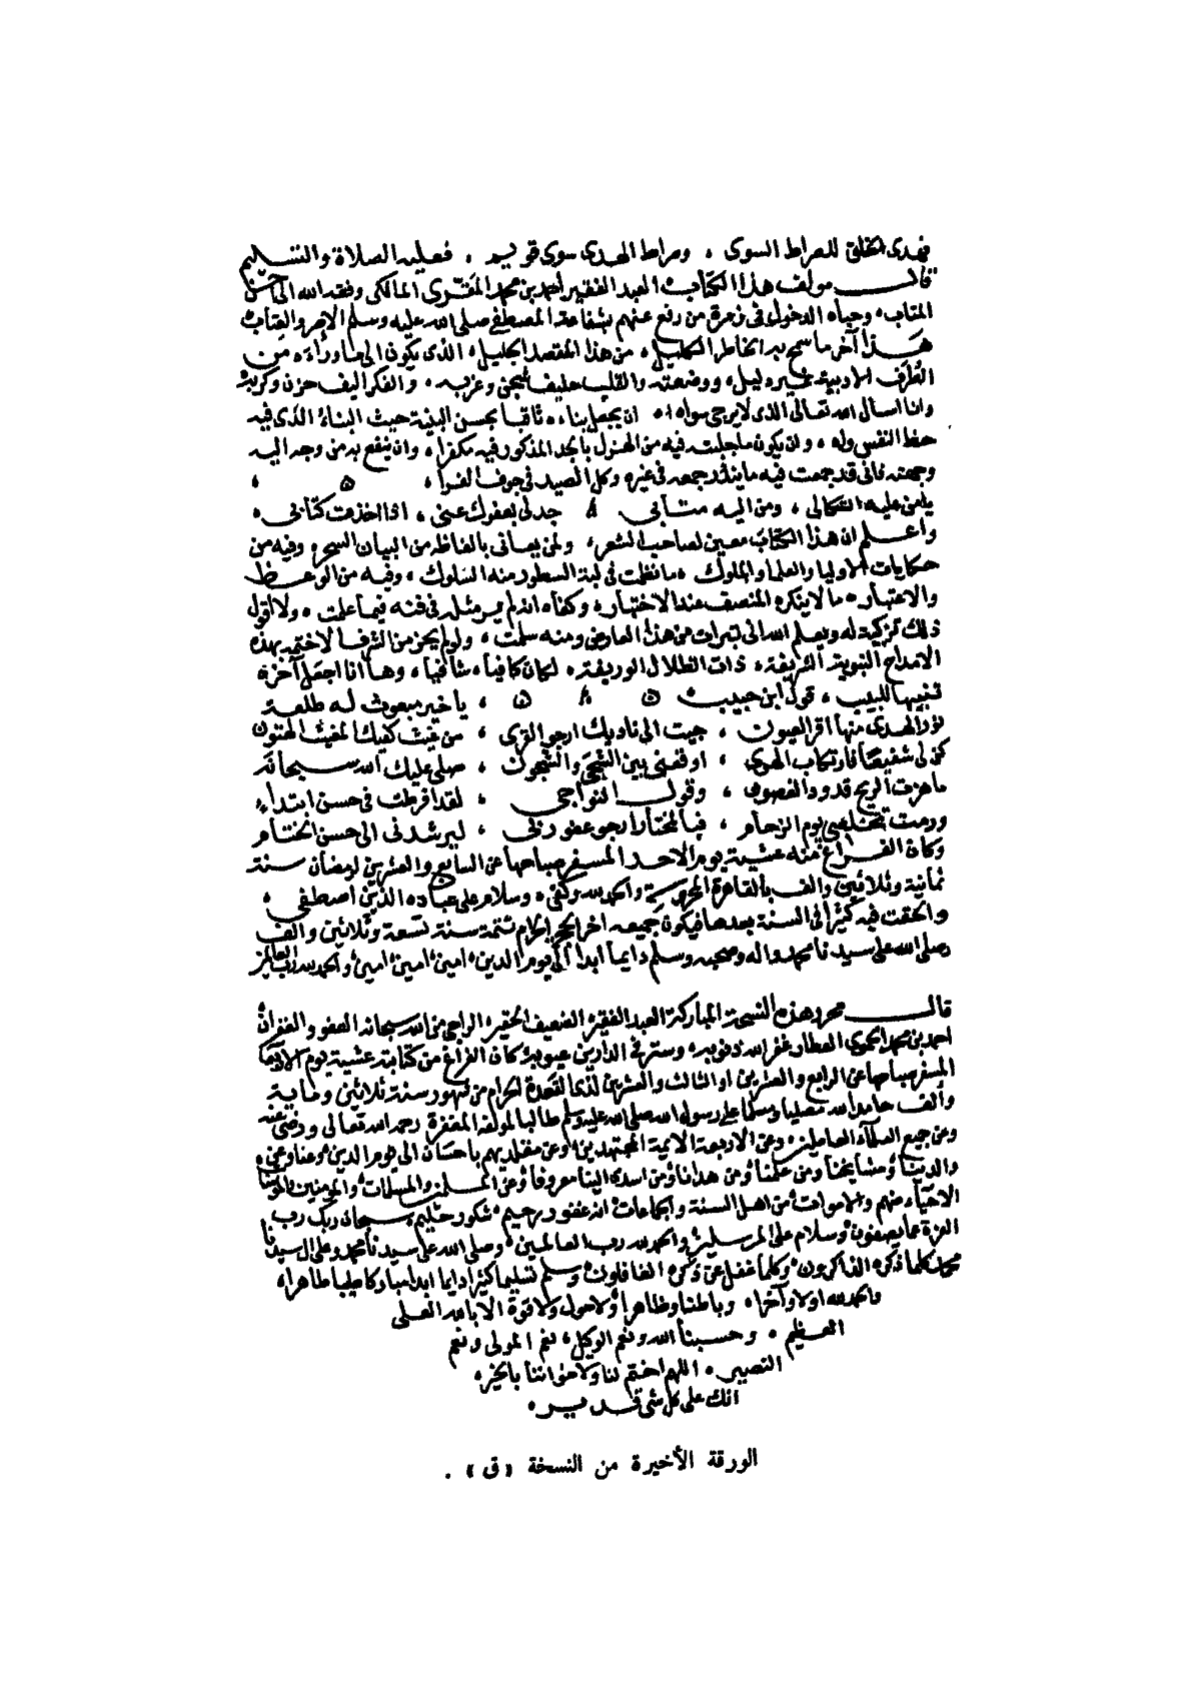 فهدى الخلق للصراط السوى ، وصراط الهدى سوى قويم ، فعليه الصلاة والتسليم
قال مولف هذا الكتاب العبد الفقير احمد بن محمد المقرى المالكى وفقه الله الى احسن
المتاب ، وحباه الدخول فى زمرة من رفع عنهم بشفاعة المصطفى صلى الله عليه وسلم الاصر والعتاب
هذا آخر ما سمح به الخاطر الكليل ، من هذا المقصد الجليل ، الذى يكون الى ما وراءه من
الطرف الادبية خير دليل ، ووضعته والقلب حليف شجن وغربه ، والفكر اليف حزن وكربه
وانا اسال الله تعالى الذى لا يرجى سواه ، ان يجعل بناءه ثاقبا بحسن البنية حيث البناء الذى فيه
حظ النفس وله ، وان يكون ما جلبت فيه من الهزل بالجد المذكور فيه مكفرا ، وان ينفع به من وجه اليه
وجهته فانى قد جمعت فيه ما يندر جمعه فى غيره وكل الصيد فى جوف الفرا ،
يا من عليه اتكالى ، ومن اليه متابى جد لى بعفوك عنى ، اذا اخذت كتابى ،
واعلم ان هذا الكتاب معين لصاحب الشعر ، ولمن يعانى بالفاظه من البيان السحر ، وفيه من
حكايات الاوليا والعلما والملوك ، ما نظمت فى لبة السطور منه السلوك ، وفيه من الوعظ
والاعتبار ، ما لا ينكره المنصف عند الاختبار ، وكفاه انه لم ير مثله فى فنه فيما علمت ، ولا اقول
ذلك تزكية له ويعلم الله انى تبرات من هذا العارض ومنه سلمت ، ولو لم يحز من الشرف الا ختمه بهذه
الامداح النبوية الشريفة ، ذات الظلال الوريفة ، لكان كافيا ، شافيا ، وها انا اجعل آخره
تنبيها للبيب ، قول ابن حبيب ، يا خير مبعوث له طلعة
نور الهدى منها اقر العيون ، جيت الى ناديك ارجو القرى ، من غيث كفيك المغيث الهتون
كن لى شفيعا فارتكاب الهوى ، اوقعنى بين الشجى والشجون ، صلى عليك الله سبحانه
ما هزت الريح قدود الغصون ، وقول النواجى ، لقد افرطت فى حسن ابتداء
ورمت تخلصى يوم الزحام ، فبالمختار ارجو عفو ربى ، ليرشدنى الى حسن الختام
وكان الفراغ منه عشية يوم الاحد المسفر صباحها عن السابع والعشرين لرمضان سنة
ثمانية وثلاثين والف بالقاهرة المحروسة والحمد لله وكفى ، وسلام على عباده الذين اصطفى ،
والحقت فيه كثيرا فى السنة بعدها فيكون جميعه اخر الحجة الحرام تتمة سنة تسعة وثلاثين والف
وصلى الله على سيدنا محمد واله وصحبه وسلم دايما ابدا الى يوم الدين امين امين امين والحمد لله رب العالمين
قال محرر هذه النسخة المباركة العبد الفقير الضعيف الحقير الراجى من الله سبحانه العفو والغفران
احمد بن محمد الحموى العطار غفر الله ذنوبه ، وستر فى الدارين عيوبه كان الفراغ من كتابته عشية يوم الاربعا
المسفر صباحها عن الرابع والعشرين او الثالث والعشرين لذى القعدة الحرام من شهور سنة ثلاثين وماية
والف حامدا لله مصليا ومسلما على رسول الله صلى الله عليه وسلم طالبا لمولفه المغفرة رحمه الله تعالى ورضى عنه
وعن جميع العلماء العاملين وعن الاربعة الايمة المجتهدين وعن مقلديهم باحسان الى يوم الدين وعنا وعن
والدينا ومشايخنا ومن علمنا ومن هدانا ومن اسدى الينا معروفا وعن المسلمين والمسلمات والمومنين والمومنات
الاحياء منهم والاموات من اهل السنة والجماعات انه غفور رحيم شكور حليم سبحان ربك رب
العزة عما يصفون وسلام على المرسلين والحمد لله رب العالمين وصلى الله على سيدنا محمد وعلى ال سيدنا
محمد كلما ذكره الذاكرون وكلما غفل عن ذكره الغافلون وسلم تسليما كثيرا دايما ابدا مباركا طيبا طاهرا ،
والحمد لله اولا وآخرا ، وباطنا وظاهرا ولا حول ولا قوة الا بالله العلى
العظيم ، وحسبنا الله ونعم الوكيل ، نعم المولى ونعم
النصير ، اللهم اختم لنا ولاخواننا بالخير ،
انك على كل شى قدير ،
الورقة الأخيرة من النسخة « ق » .